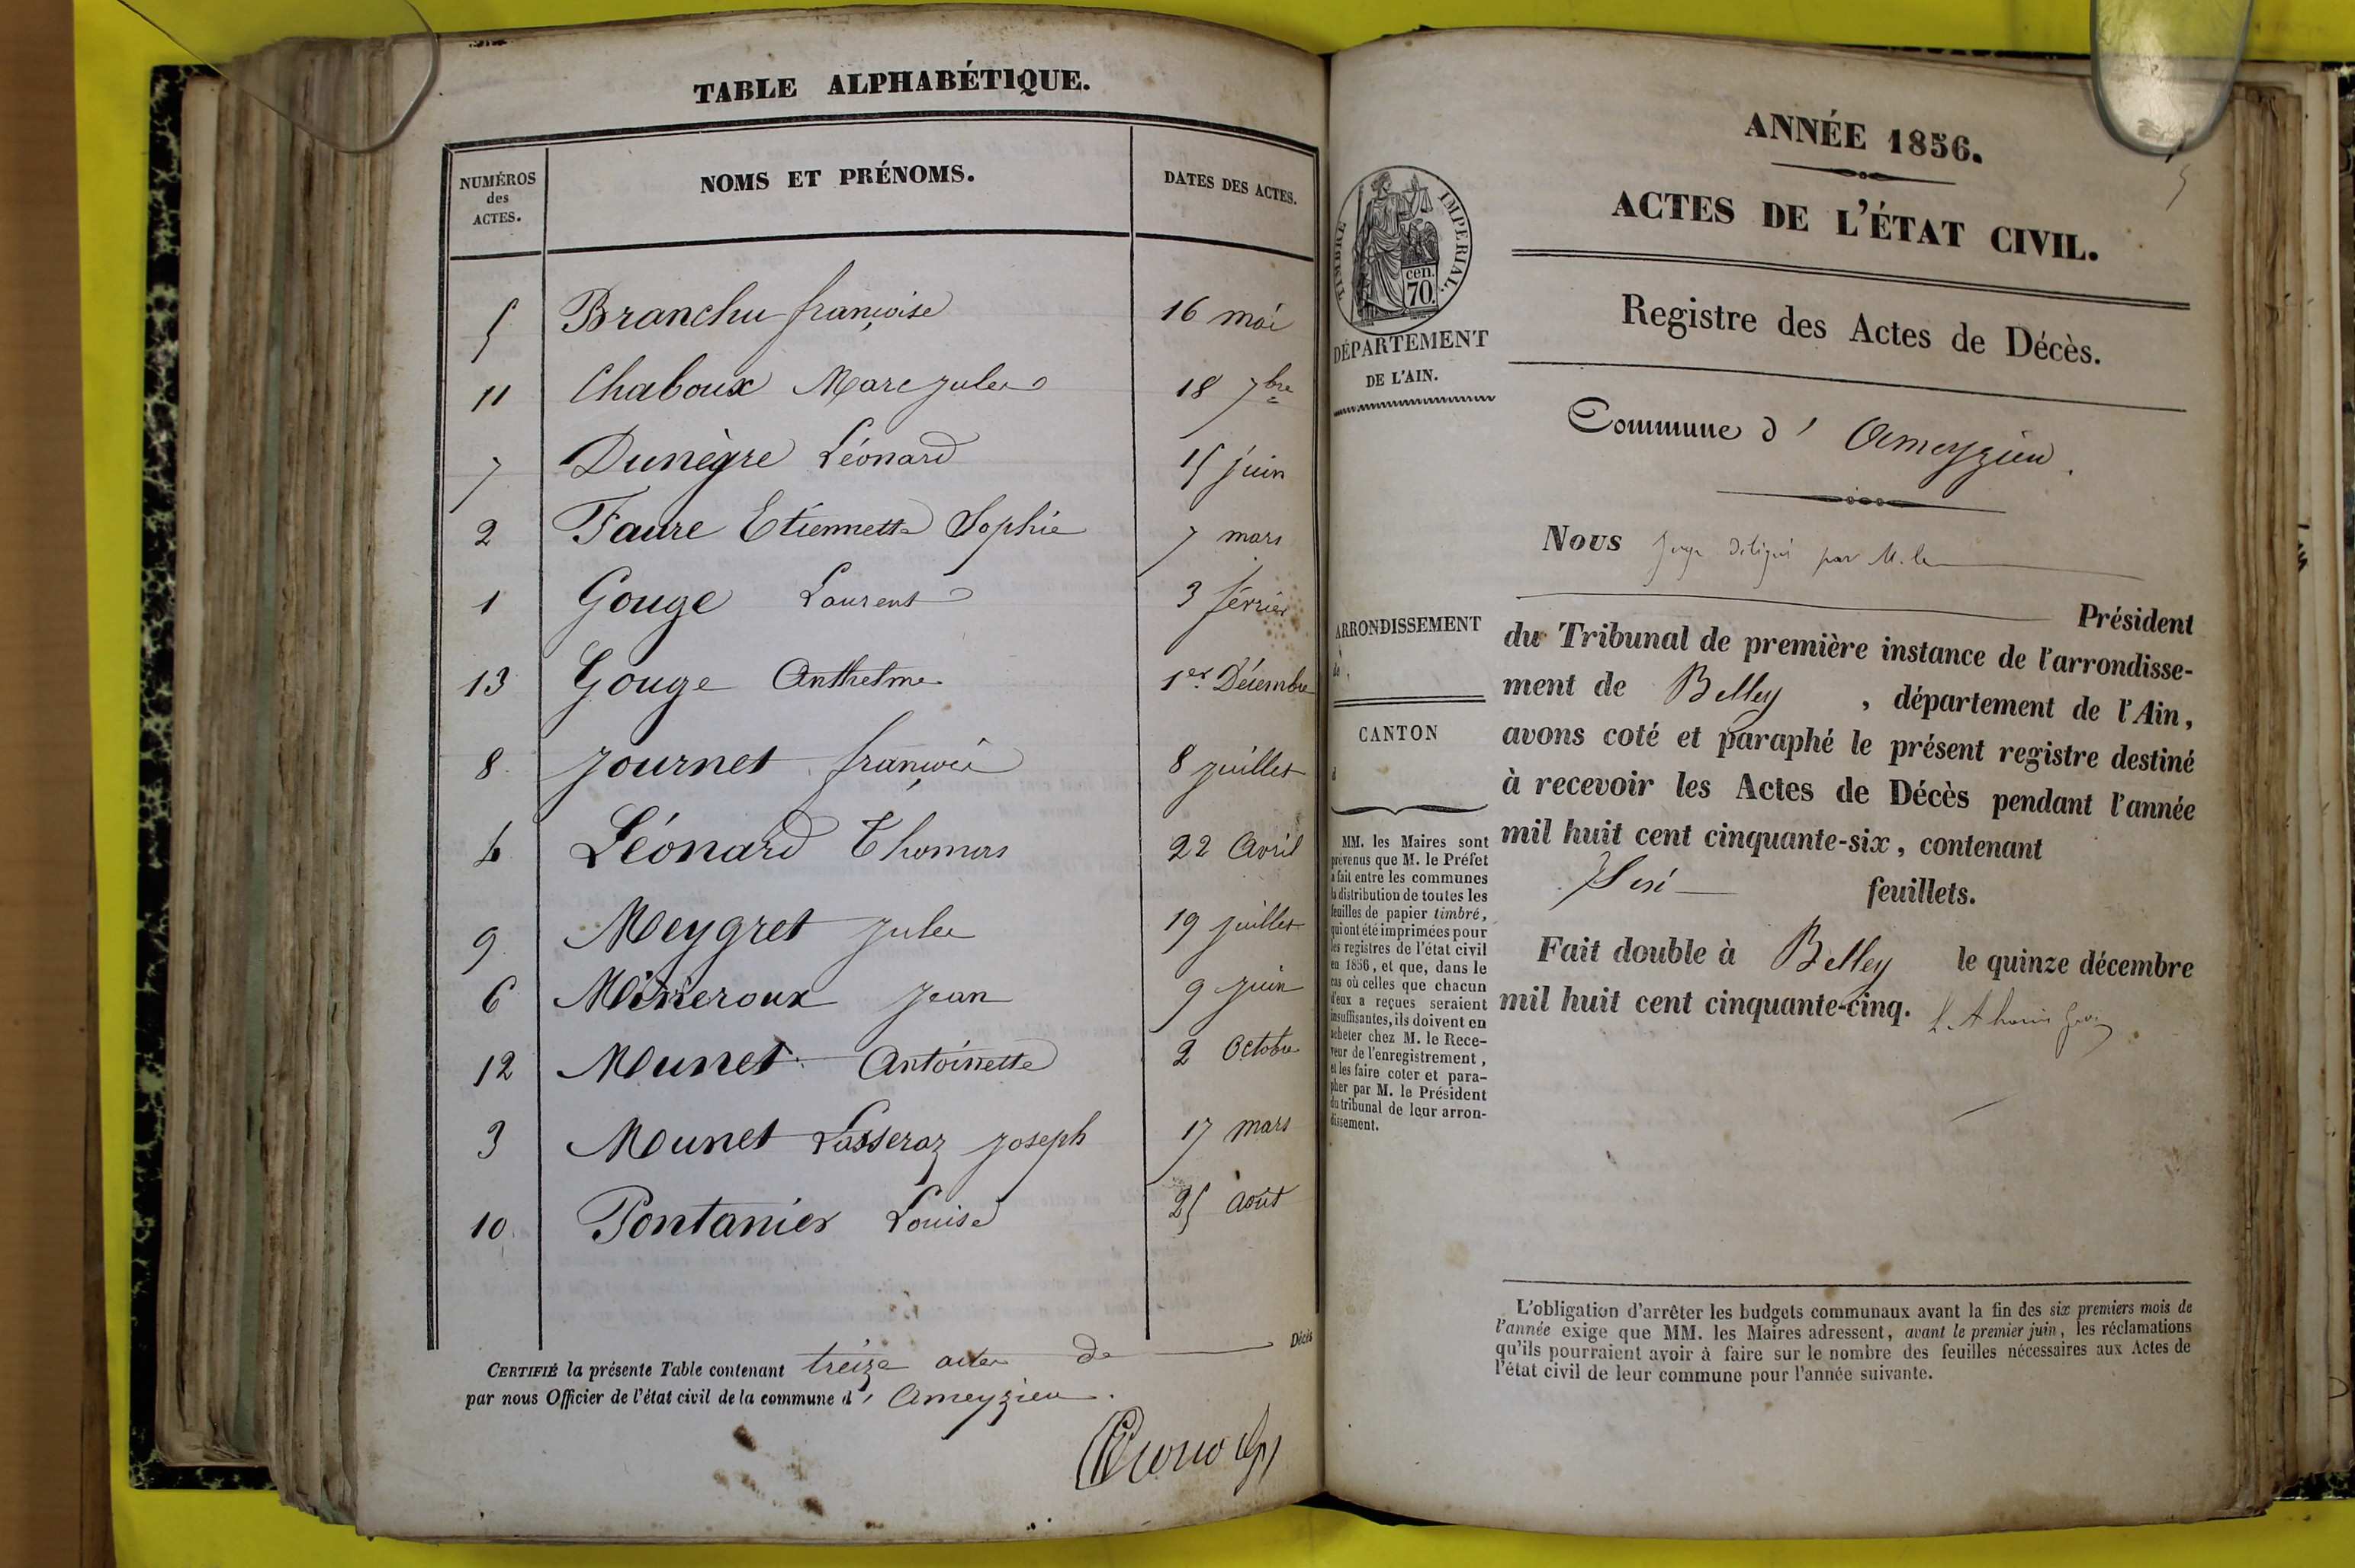 TABLE ALPHABÉTIQUE.
NUMÉROS des ACTES. NOMS ET PRÉNOMS. DATES DES ACTES.
5 Branchu françoise 16 mai
11 Chaboux Marc Jules 18 7bre
7 Dunègre Léonard 15 juin
2 Faure Etiennette Sophie 7 mars
1 Gouge Laurent 3 février
13 Gouge Anthelme 1er Décembre
8 Journet françois 8 juillet
4 Léonard Thomas 22 Avril
9 Meygret Jules 19 juillet
6 Mineroux Jean 9 juin
12 Munet Antoinette 2 Octobre
3 Munet Lasseraz Joseph 17 mars
10 Pontanier Louise 25 août
CERTIFIÉ la présente Table contenant treize actes de Décès
par nous Officier de l'état civil de la commune d' Ameyzieu.
ANNÉE 1856.
5
ACTES DE L'ÉTAT CIVIL.
TIMBRE IMPERIAL.
cen.
70.
DÉPARTEMENT
DE L'AIN.
Registre des Actes de Décès.
Commune d' Ameyzieu.
Nous Juge délégué par M. le
Président
ARRONDISSEMENT
de
CANTON
d
du Tribunal de première instance de l'arrondisse-
ment de Belley , département de l'Ain,
avons coté et paraphé le présent registre destiné
à recevoir les Actes de Décès pendant l'année
mil huit cent cinquante-six, contenant
feuillets.
Fait double à Belley le quinze décembre
mil huit cent cinquante-cinq.
MM. les Maires sont
prévenus que M. le Préfet
a fait entre les communes
la distribution de toutes les
feuilles de papier timbré,
qui ont été imprimées pour
les registres de l'état civil
en 1856, et que, dans le
cas où celles que chacun
d'eux a reçues seraient
insuffisantes, ils doivent en
acheter chez M. le Rece-
veur de l'enregistrement,
et les faire coter et para-
pher par M. le Président
du tribunal de leur arron-
dissement.
L'obligation d'arrêter les budgets communaux avant la fin des six premiers mois de
l'année exige que MM. les Maires adressent, avant le premier juin, les réclamations
qu'ils pourraient avoir à faire sur le nombre des feuilles nécessaires aux Actes de
l'état civil de leur commune pour l'année suivante.